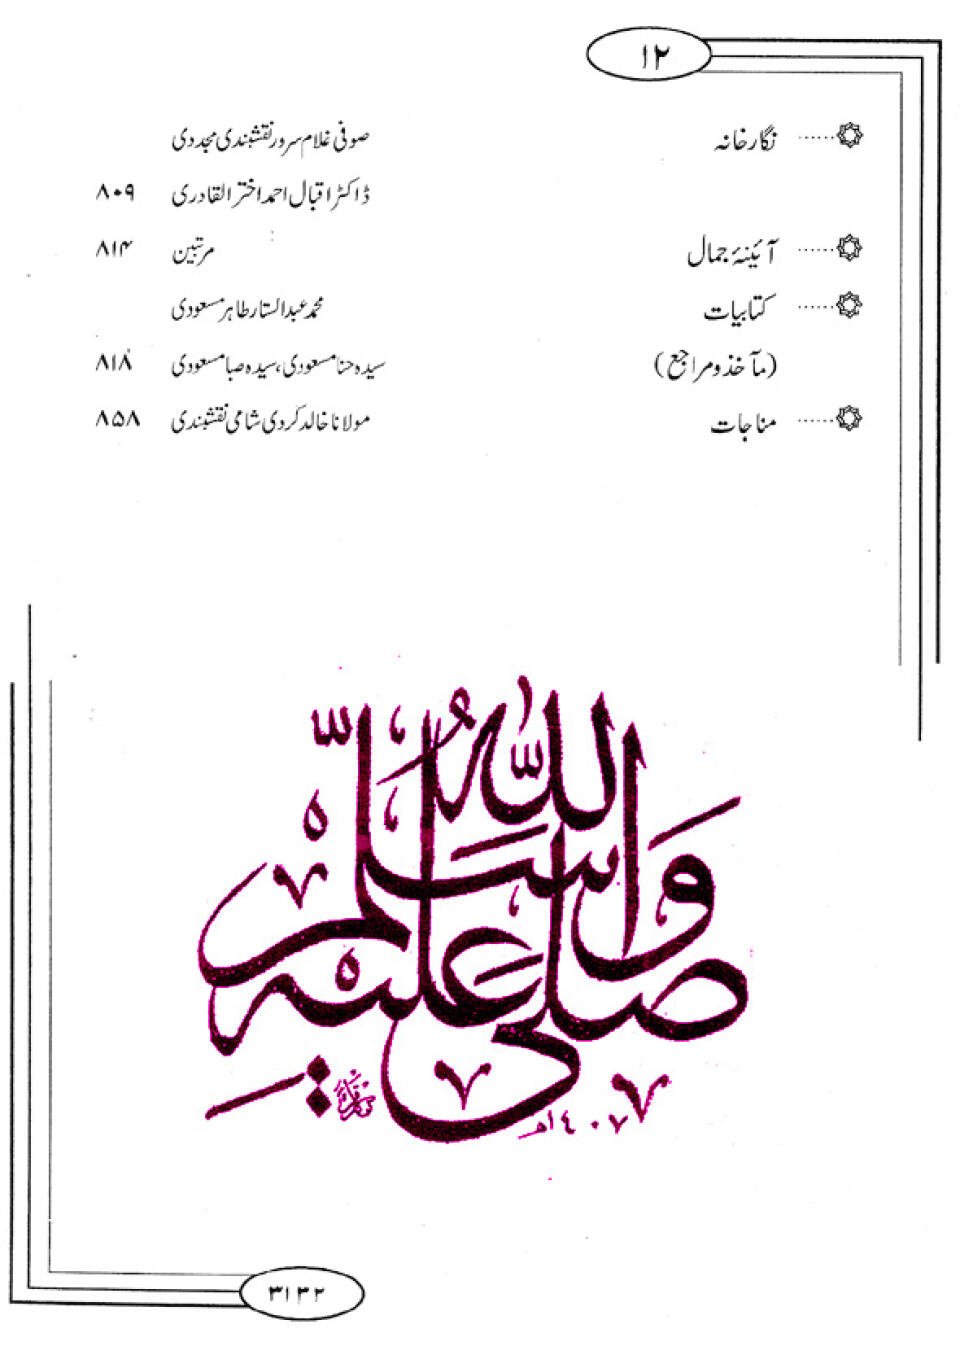 ۱۲
نگارخانہ ...... صوفی غلام سرور نقشبندی مجددی
ڈاکٹر اقبال احمد اختر القادری ۸۰۹
آئینۂ جمال ...... مرتبین ۸۱۴
کتابیات ...... محمد عبدالستار طاہر مسعودی
(مآخذ و مراجع) سیدہ حنا مسعودی، سیدہ صبا مسعودی ۸۱۸
مناجات ...... مولانا خالد کردی شامی نقشبندی ۸۵۸
صلى الله عليه وآله وسلم
١٤٠٧ھ
۳۱۳۲